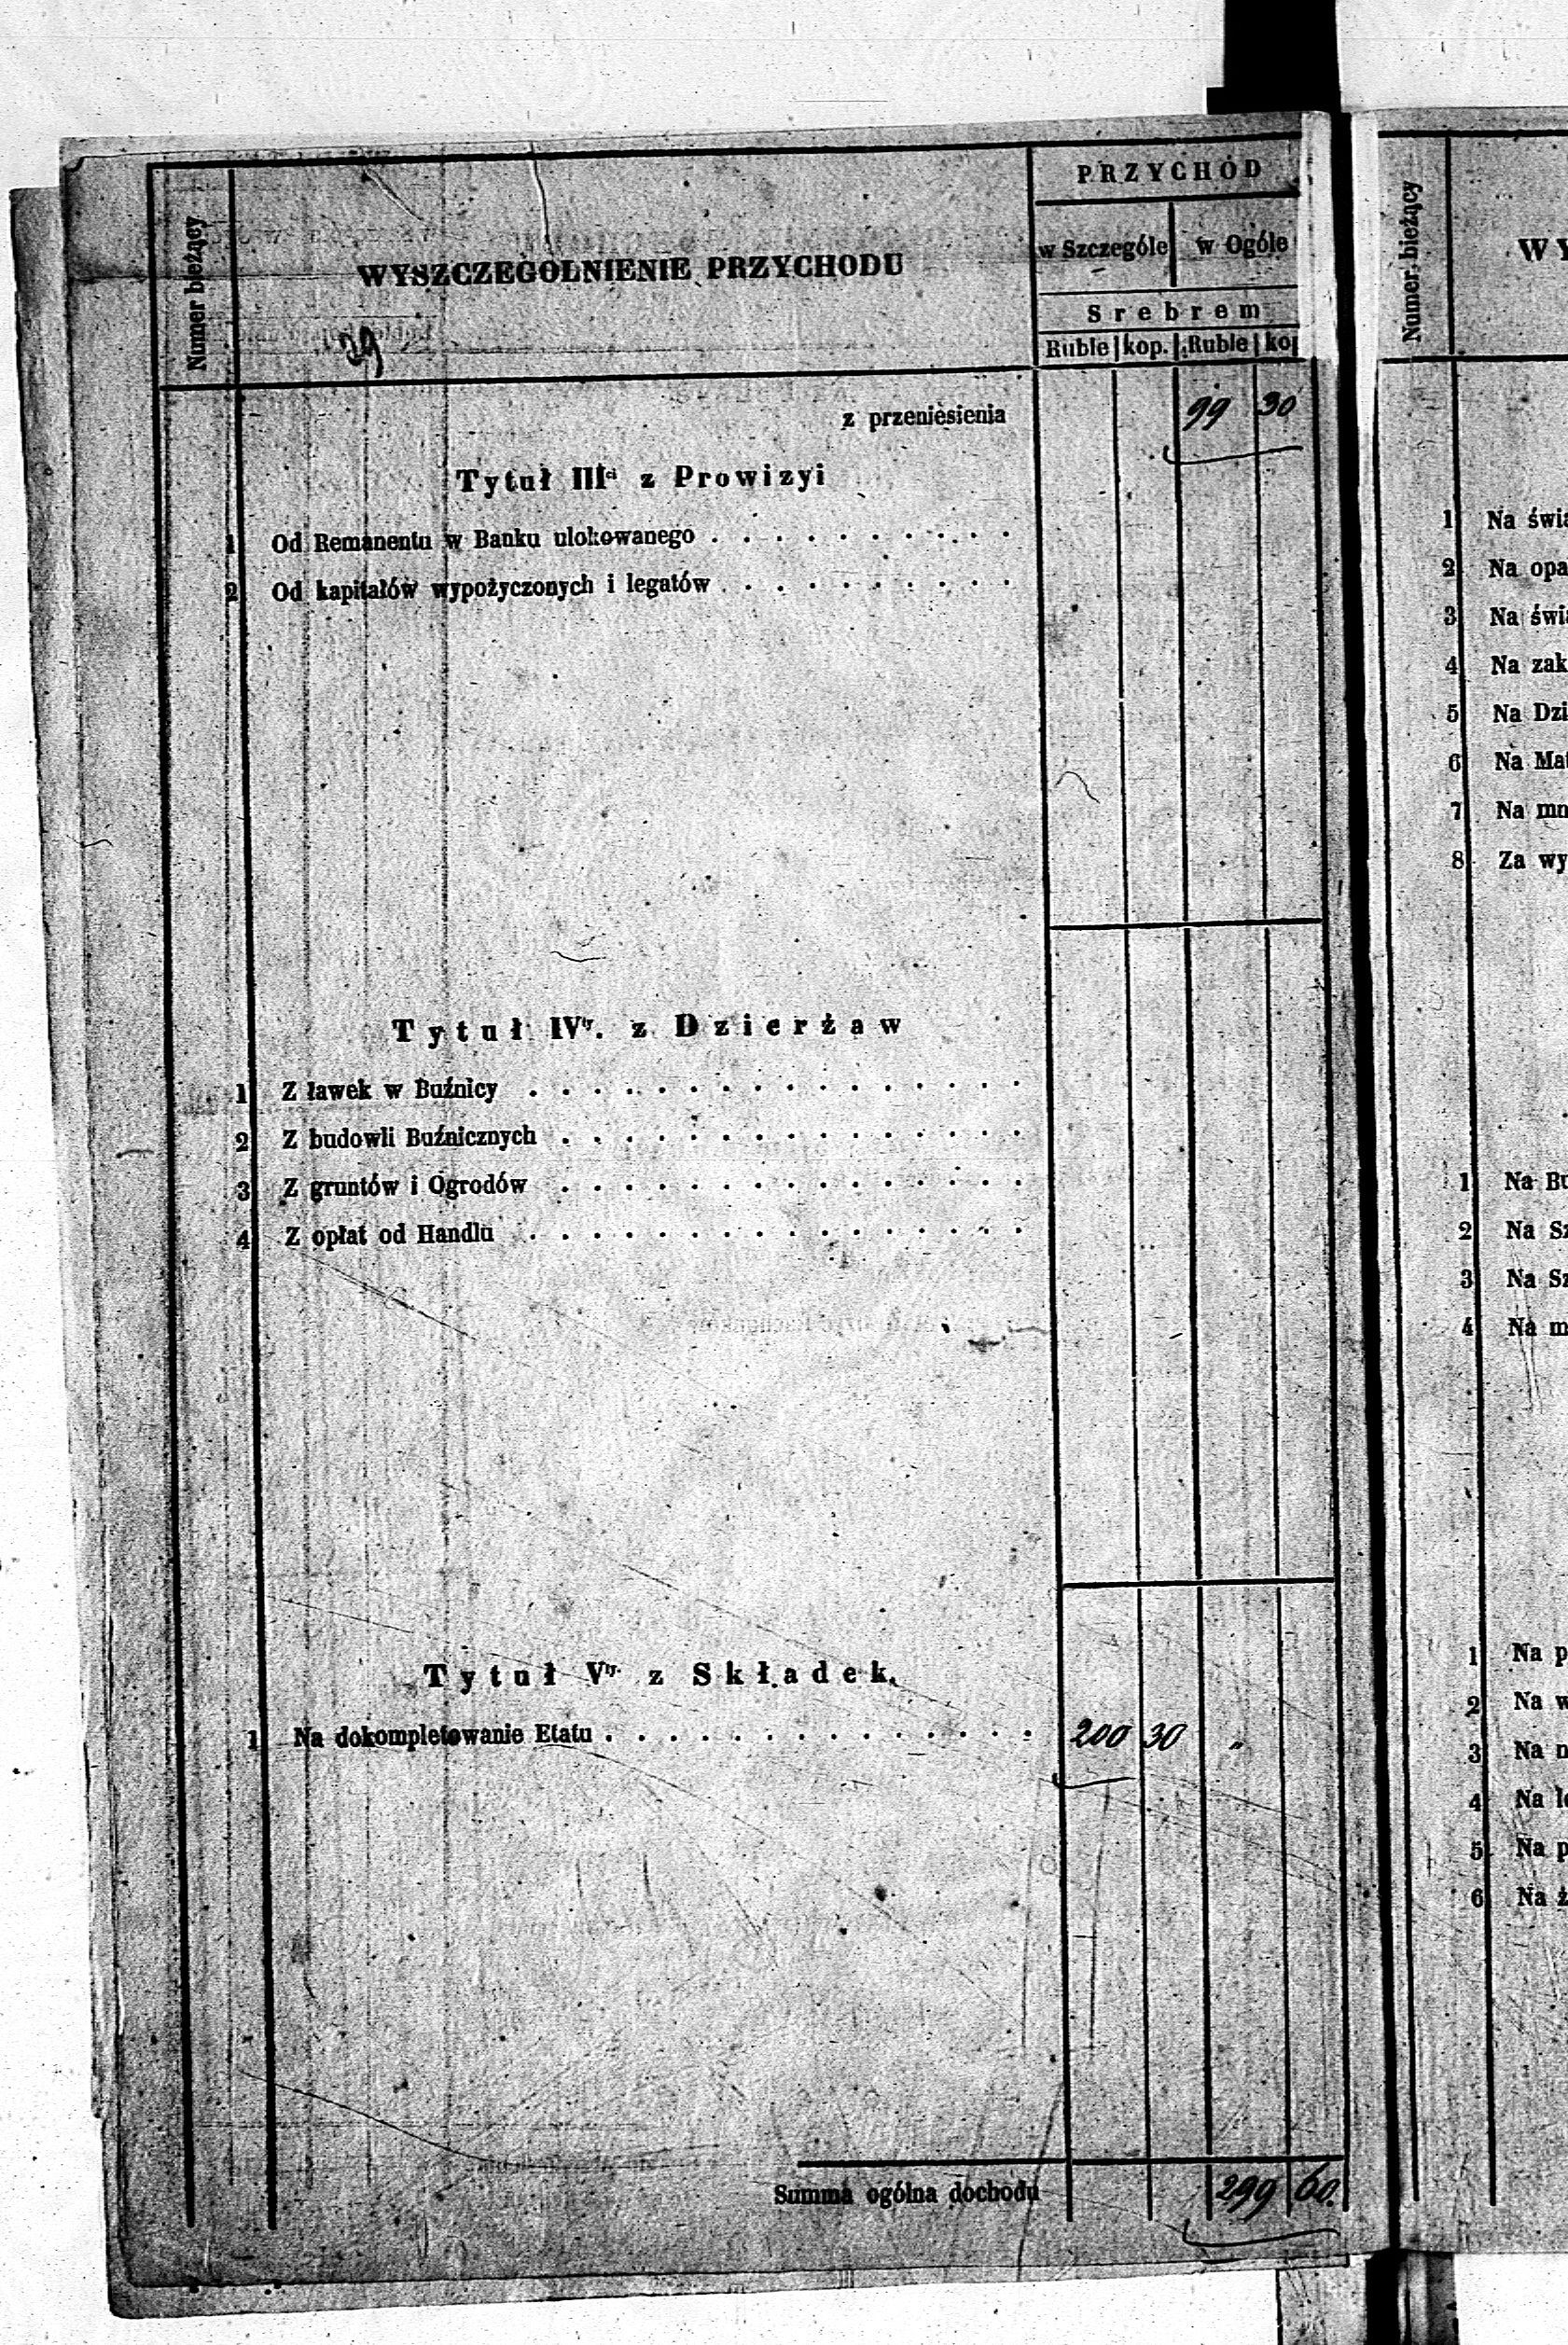 Numer bieżący
WYSZCZEGÓLNIENIE PRZYCHODU
PRZYCHÓD
w Szczególe w Ogóle
Srebrem
Ruble kop. Ruble kop
z przeniesienia 99 30
Tytuł III z Prowizyi
1 Od Remanentu w Banku ulokowanego
2 Od kapitałów wypożyczonych i legatów
Tytuł IVty. z Dzierżaw
1 Z ławek w Buźnicy
2 Z budowli Buźnicznych
3 Z gruntów i Ogrodów
4 Z opłat od Handlu
Tytuł Vty. z Składek.
1 Na dokompletowanie Etatu 200 30 "
Summa ogólna dochodu 299 60.
Numer bieżący
1
2 Na
3 Na
4 Na
5 Na
6 Na
7 Na
8 Za
1 Na
2 Na
3 Na
4 Na
1 Na
2 Na
3 Na
4 Na
5 Na
6 Na